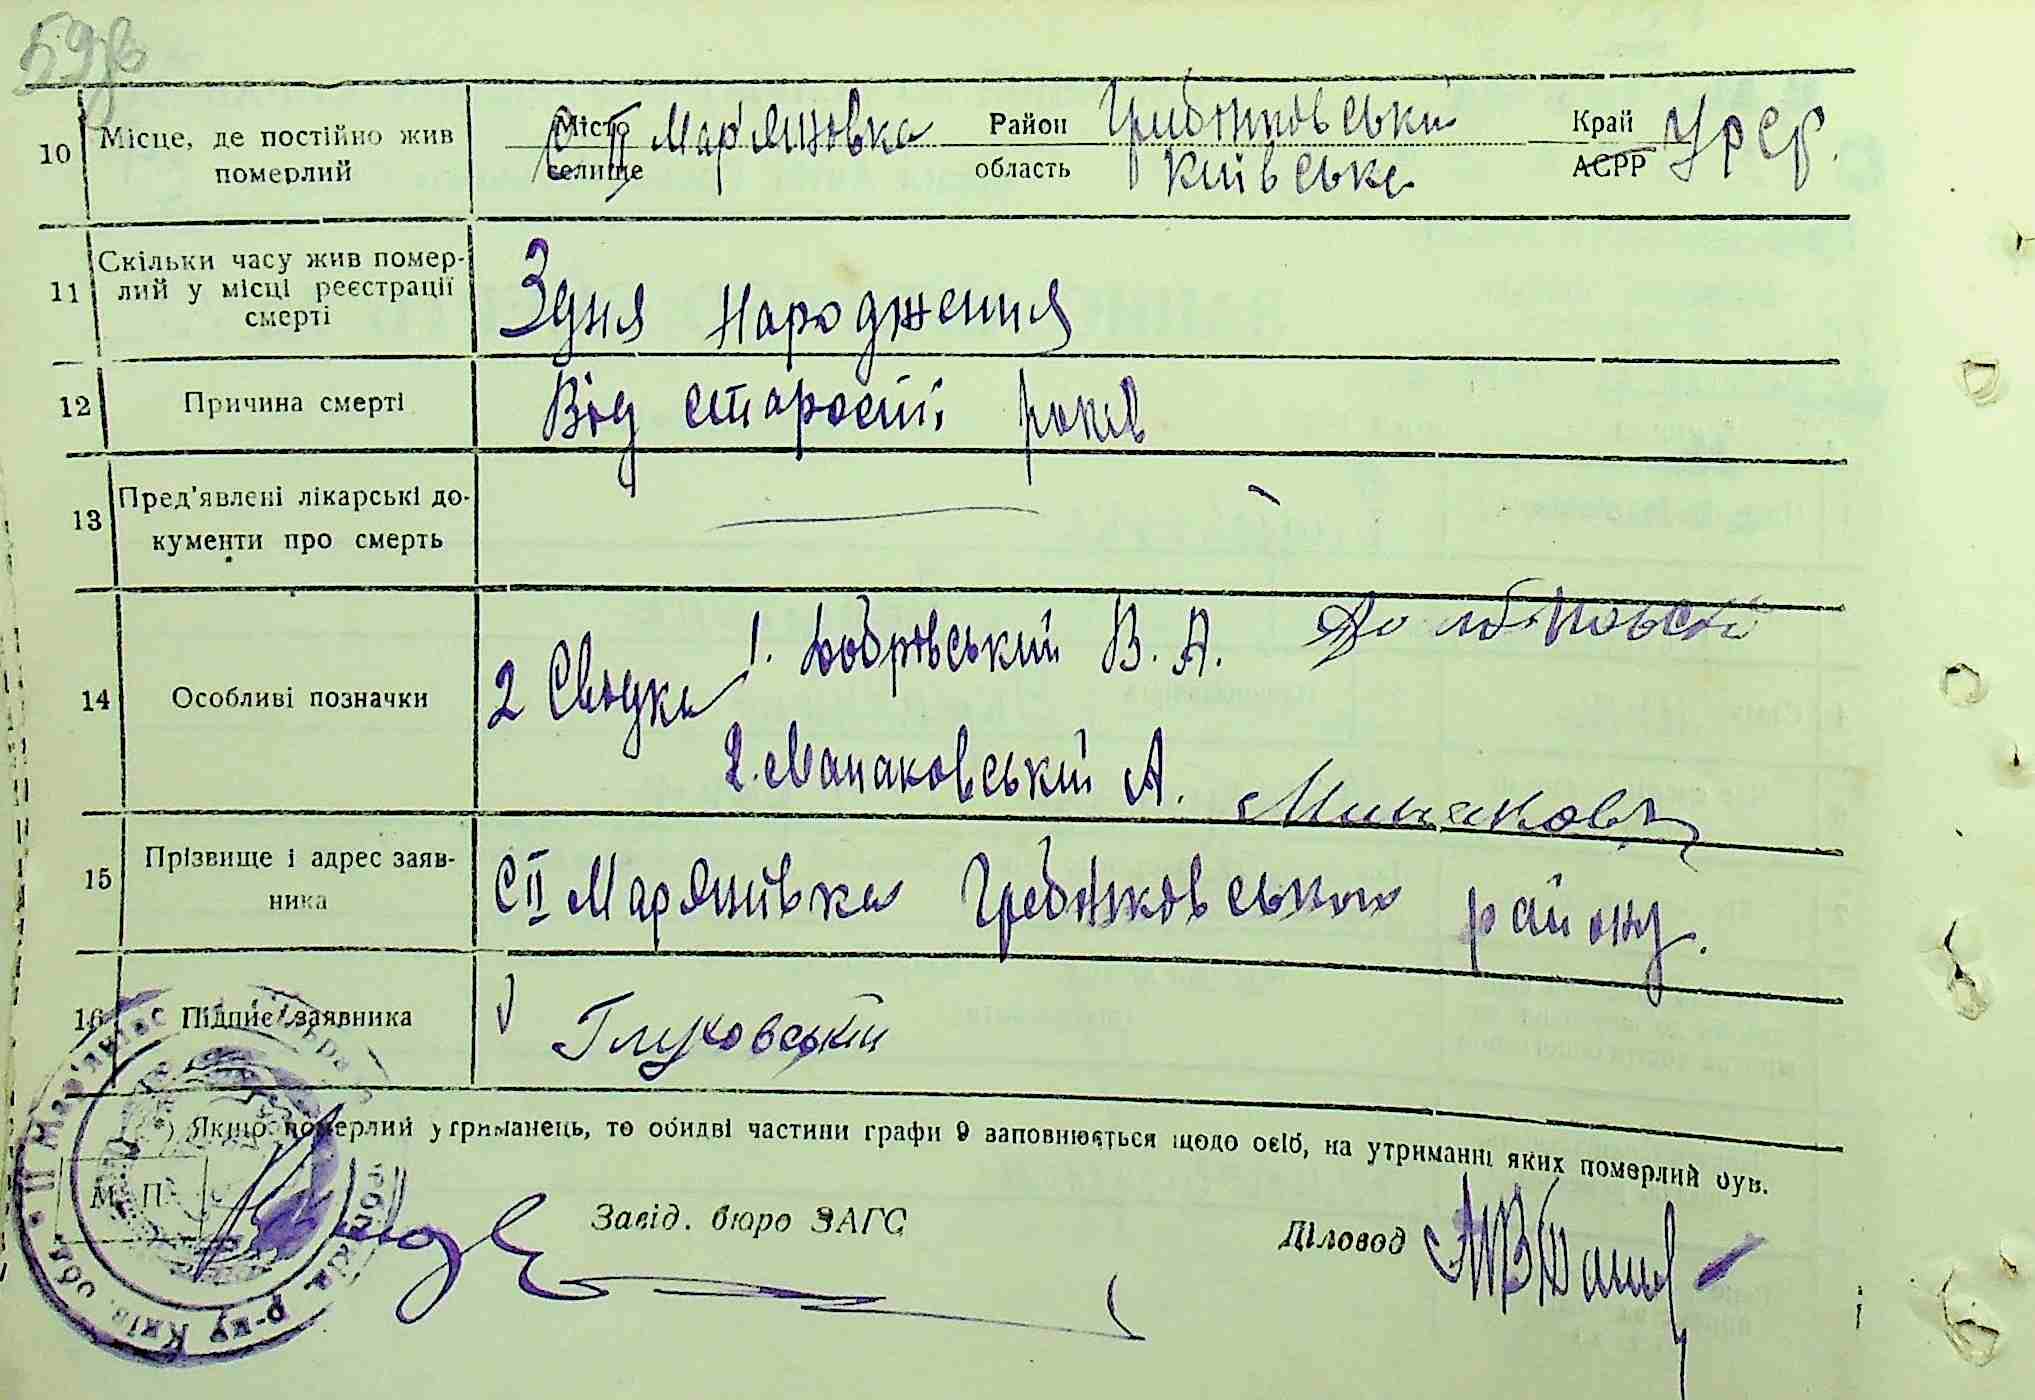 59зв
10 Місце, де постійно жив померлий
Місто
селище
с II Мар'яновка
Район Гребінковський
область Київська
Край
АСРР
УРСР.
11 Скільки часу жив помер-
лий у місці реєстрації
смерті
З дня народження
12 Причина смерті
Від старости років
13 Пред'явлені лікарські до-
кументи про смерть
14 Особливі позначки
2 Сводка
1. Добровський В. А.
2. Манаковській А.
15 Прізвище і адрес заяв-
ника
С II Мар'янівка Гребінковського району.
16 Підпис заявника
V Глуховській
*) Якщо померлий утриманець, то обидві частини графи 9 заповнюється щодо осіб, на утриманні яких померлий був.
М. П.
Завід. бюро ЗАГС
Діловод
II Мар'янівс
р-ну Київ. обл.